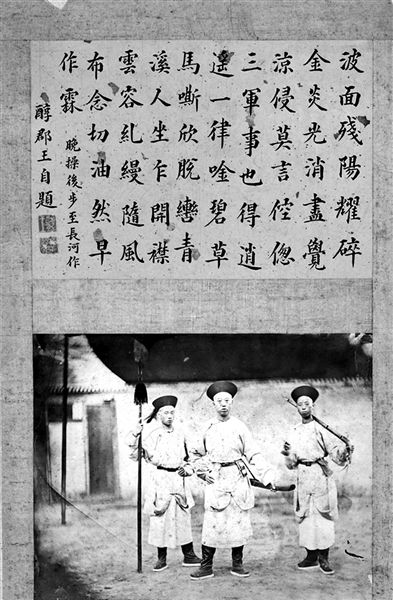 波面殘陽耀碎
金炎光消盡覺
涼侵莫言倥傯
三軍事也得逍
遙一律唫碧草
馬嘶欣脫轡青
溪人坐乍開襟
雲容糺縵隨風
布念切油然早
作霖
晚操後步至長河作
醇郡王自題